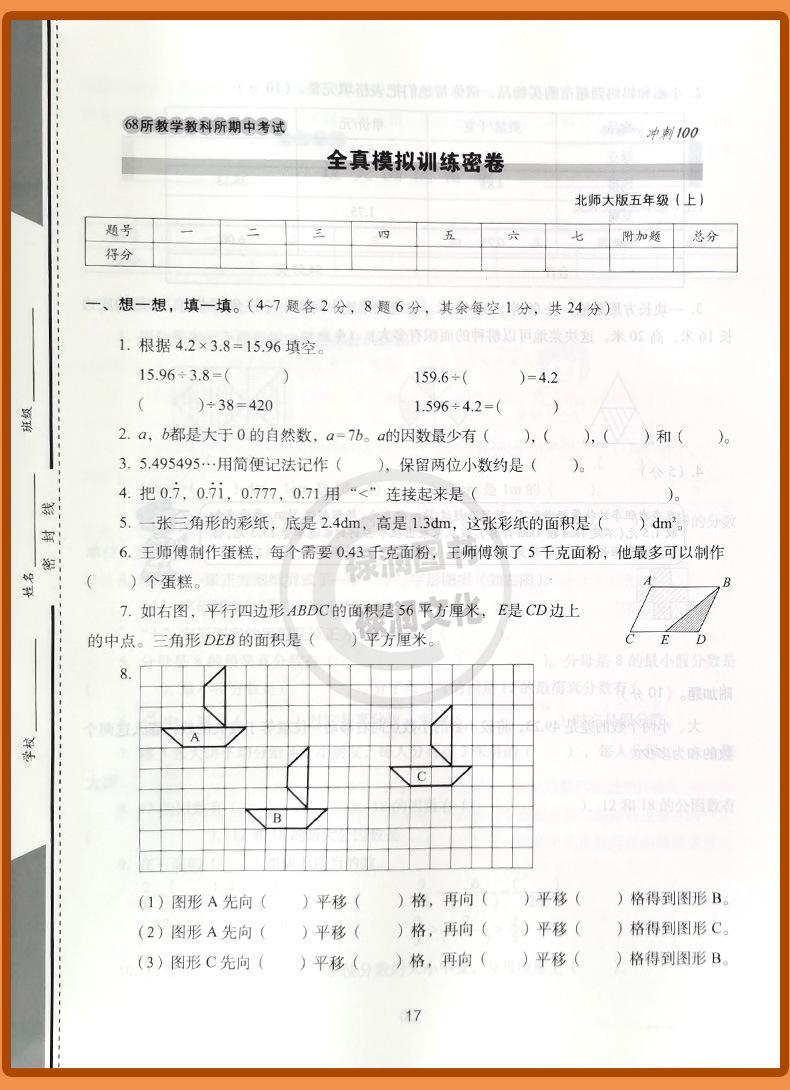 68所教学教科所期中考试
冲刺100
全真模拟训练密卷
北师大版五年级（上）
题号 一 二 三 四 五 六 七 附加题 总分
得分
一、想一想，填一填。（4~7题各2分，8题6分，其余每空1分，共24分）
1. 根据4.2×3.8=15.96填空。
15.96÷3.8=（　　） 159.6÷（　　）=4.2
（　　）÷38=420 1.596÷4.2=（　　）
2. a，b都是大于0的自然数，a=7b。a的因数最少有（　　），（　　），（　　）和（　　）。
3. 5.495495…用简便记法记作（　　），保留两位小数约是（　　）。
4. 把0.7̇，0.7̇1̇，0.777，0.71用“<”连接起来是（　　）。
5. 一张三角形的彩纸，底是2.4dm，高是1.3dm，这张彩纸的面积是（　　）dm²。
6. 王师傅制作蛋糕，每个需要0.43千克面粉，王师傅领了5千克面粉，他最多可以制作
（　　）个蛋糕。
7. 如右图，平行四边形ABDC的面积是56平方厘米，E是CD边上
的中点。三角形DEB的面积是（　　）平方厘米。
A B
C E D
8.
A
B
C
（1）图形A先向（　　）平移（　　）格，再向（　　）平移（　　）格得到图形B。
（2）图形A先向（　　）平移（　　）格，再向（　　）平移（　　）格得到图形C。
（3）图形C先向（　　）平移（　　）格，再向（　　）平移（　　）格得到图形B。
17
学校
姓名
班级
密封线
禄润图书
禄润文化